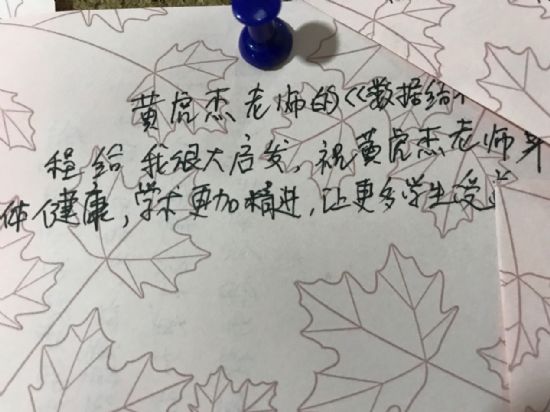 黄虎杰老师的《数据结
程给我很大启发，祝黄虎杰老师身
体健康，学术更加精进，让更多学生受